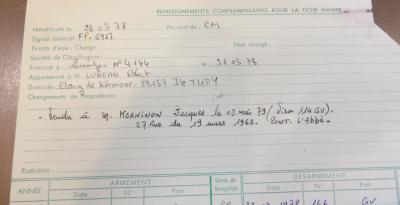 RENSEIGNEMENTS COMPLEMENTAIRES POUR LA FICHE NAVIRE
Immatriculé le : 28.03.78 Provenant de : CM
Signal distinctif FP. 6967
Droits d'eau : Chargé Non chargé
Société de Classification :
Francisé à : Quimper N° 4144 le 31 03 78
Appartenant à : M. LUNEAU
Domicile : Etang de Kermor. 29157 Ile TUDY
Changements de Propriétaire :
- Vendu à M. KERNINON Jacques le 02 mai 79
27 Rue du 19 mars 1962. PONT. L'Abbé.
Radiation :
ANNÉE ARMEMENT DÉSARMEMENT
Date N° Port Genre de Navigation Date N° Port
1978 GV